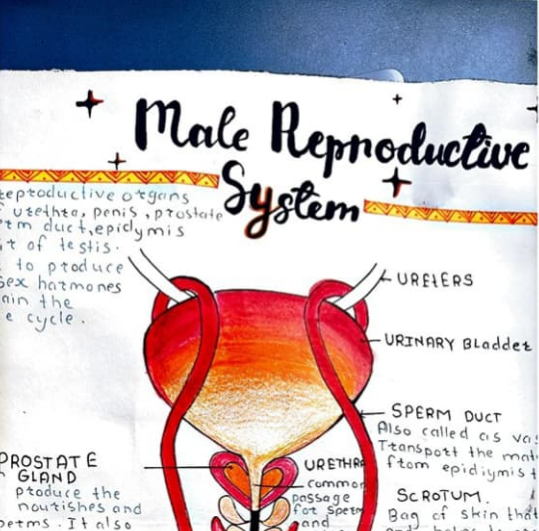 Male Reproductive
System
reproductive organs
urethra, penis, prostate
duct, epidymis
of testis.
to produce
sex hormones
the
cycle.
URETERS
URINARY Bladder
SPERM DUCT
Also called as vas
Transport the
from epidiymis
PROSTATE
GLAND
produce the
nourishes and
It also
URETHRA
common
passage
for sperm
and
SCROTUM.
Bag of skin that